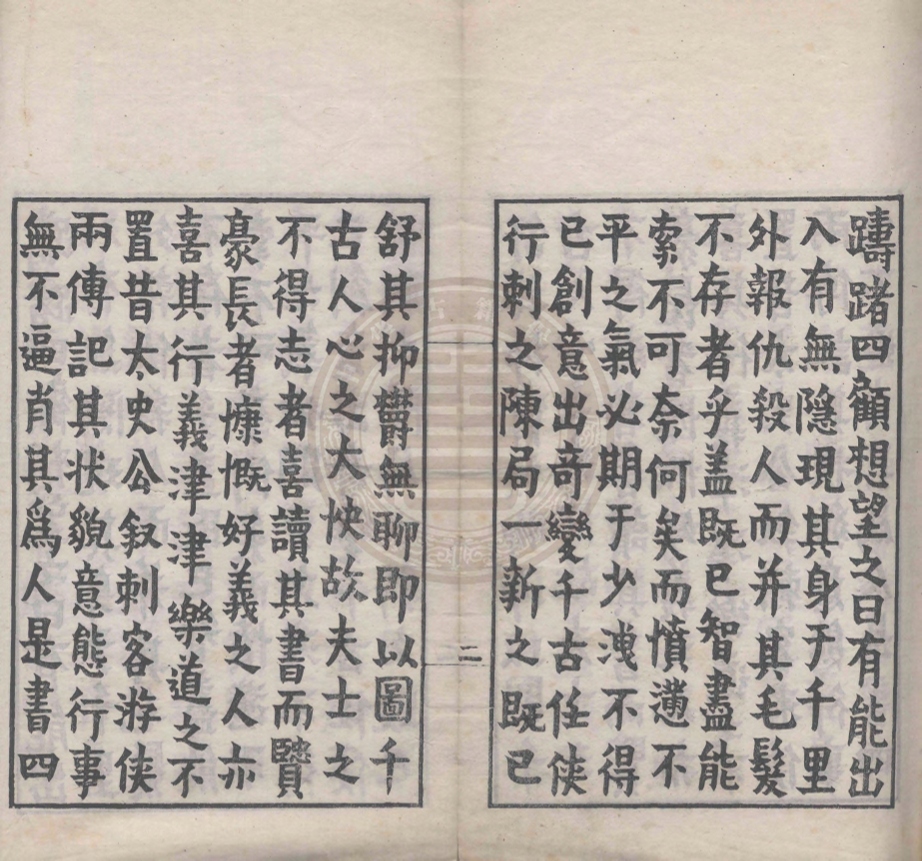 躊躇四顧想望之曰有能出
入有無隱現其身于千里
外報仇殺人而并其毛髮
不存者乎蓋既已智盡能
索不可奈何矣而憤懣不
平之氣必期于少洩不得
已創意出奇變千古任俠
行刺之陳局一新之既已
二
舒其抑鬱無聊即以圖千
古人心之大快故夫士之
不得志者喜讀其書而賢
豪長者慷慨好義之人亦
喜其行義津津樂道之不
置昔太史公叙刺客游俠
兩傳記其状貌意態行事
無不逼肖其爲人是書四